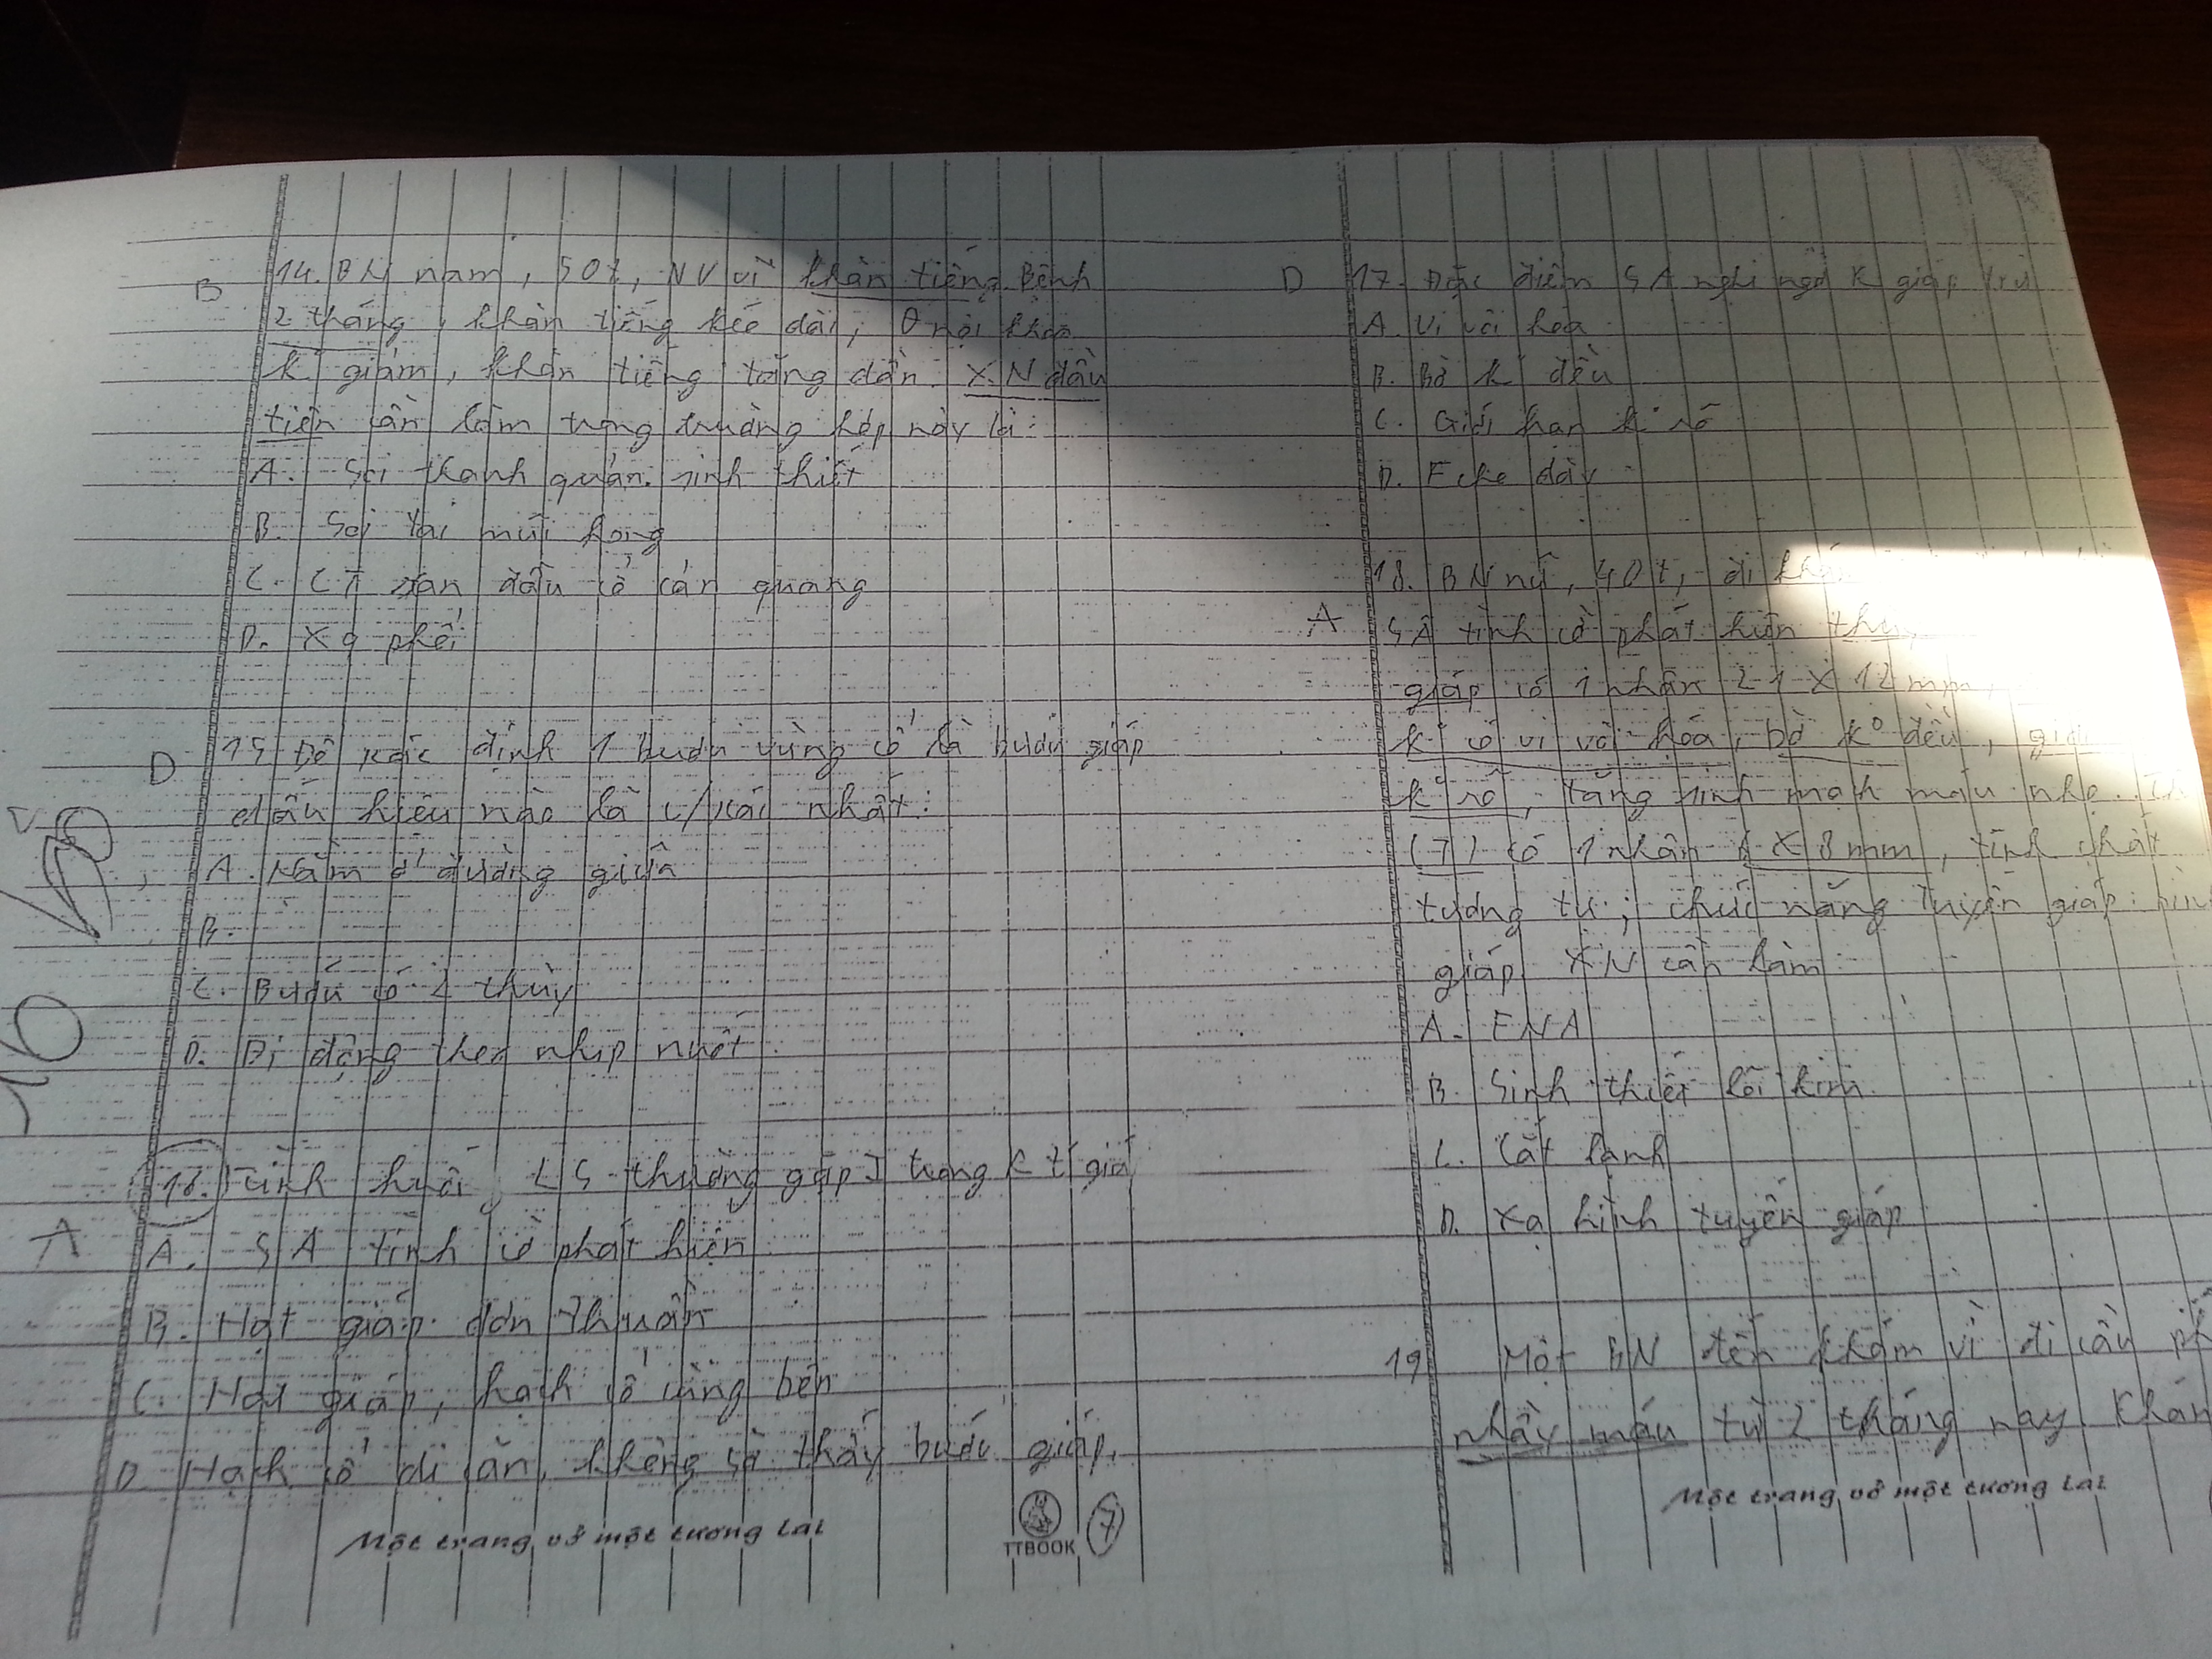 B 14. BN nam, 50t, NV vì khàn tiếng. Bệnh
2 tháng, khàn tiếng kéo dài, θ nội khoa
k° giảm, khàn tiếng tăng dần. XN đầu
tiên cần làm trong trường hợp này là:
A. Soi thanh quản. sinh thiết
B. Soi tai mũi họng
C. CT scan đầu cổ cản quang
D. XQ phổi
D 15. Để xác định 1 bướu vùng cổ là bướu giáp
dấu hiệu nào là c/xác nhất:
A. Nằm ở đường giữa
B.
C. Bướu có 2 thùy
D. Di động theo nhịp nuốt
16. Tình huống LS thường gặp I trong K t/giá
A A. SA tình cờ phát hiện
B. Hạt giáp đơn thuần
C. Hạt giáp, hạch cổ cùng bên
D. Hạch cổ di căn, không sờ thấy bướu giáp.
Một trang vở một tương lai
TTBOOK 7
D 17. Đặc điểm SA nghi ngờ K giáp trừ
A. Vi vôi hóa
B. Bờ k° đều
C. Giới hạn k° rõ
D. Echo dày
18. BN nữ, 40t, đi
A SA tình cờ phát hiện
giáp có 1 nhân 21 x 12 mm,
k° có vi vôi hóa, bờ k° đều,
k° rõ, tăng sinh mạch máu nhẹ.
(T) có 1 nhân x 8 mm, tính chất
tương tự; chức năng tuyến giáp:
giáp. XN cần làm:
A. FNA
B. Sinh thiết lõi kim
C. Cắt lạnh
D. Xạ hình tuyến giáp
19. Một BN đến khám vì đi cầu
nhầy máu từ 2 tháng nay. Khám
Một trang vở một tương lai